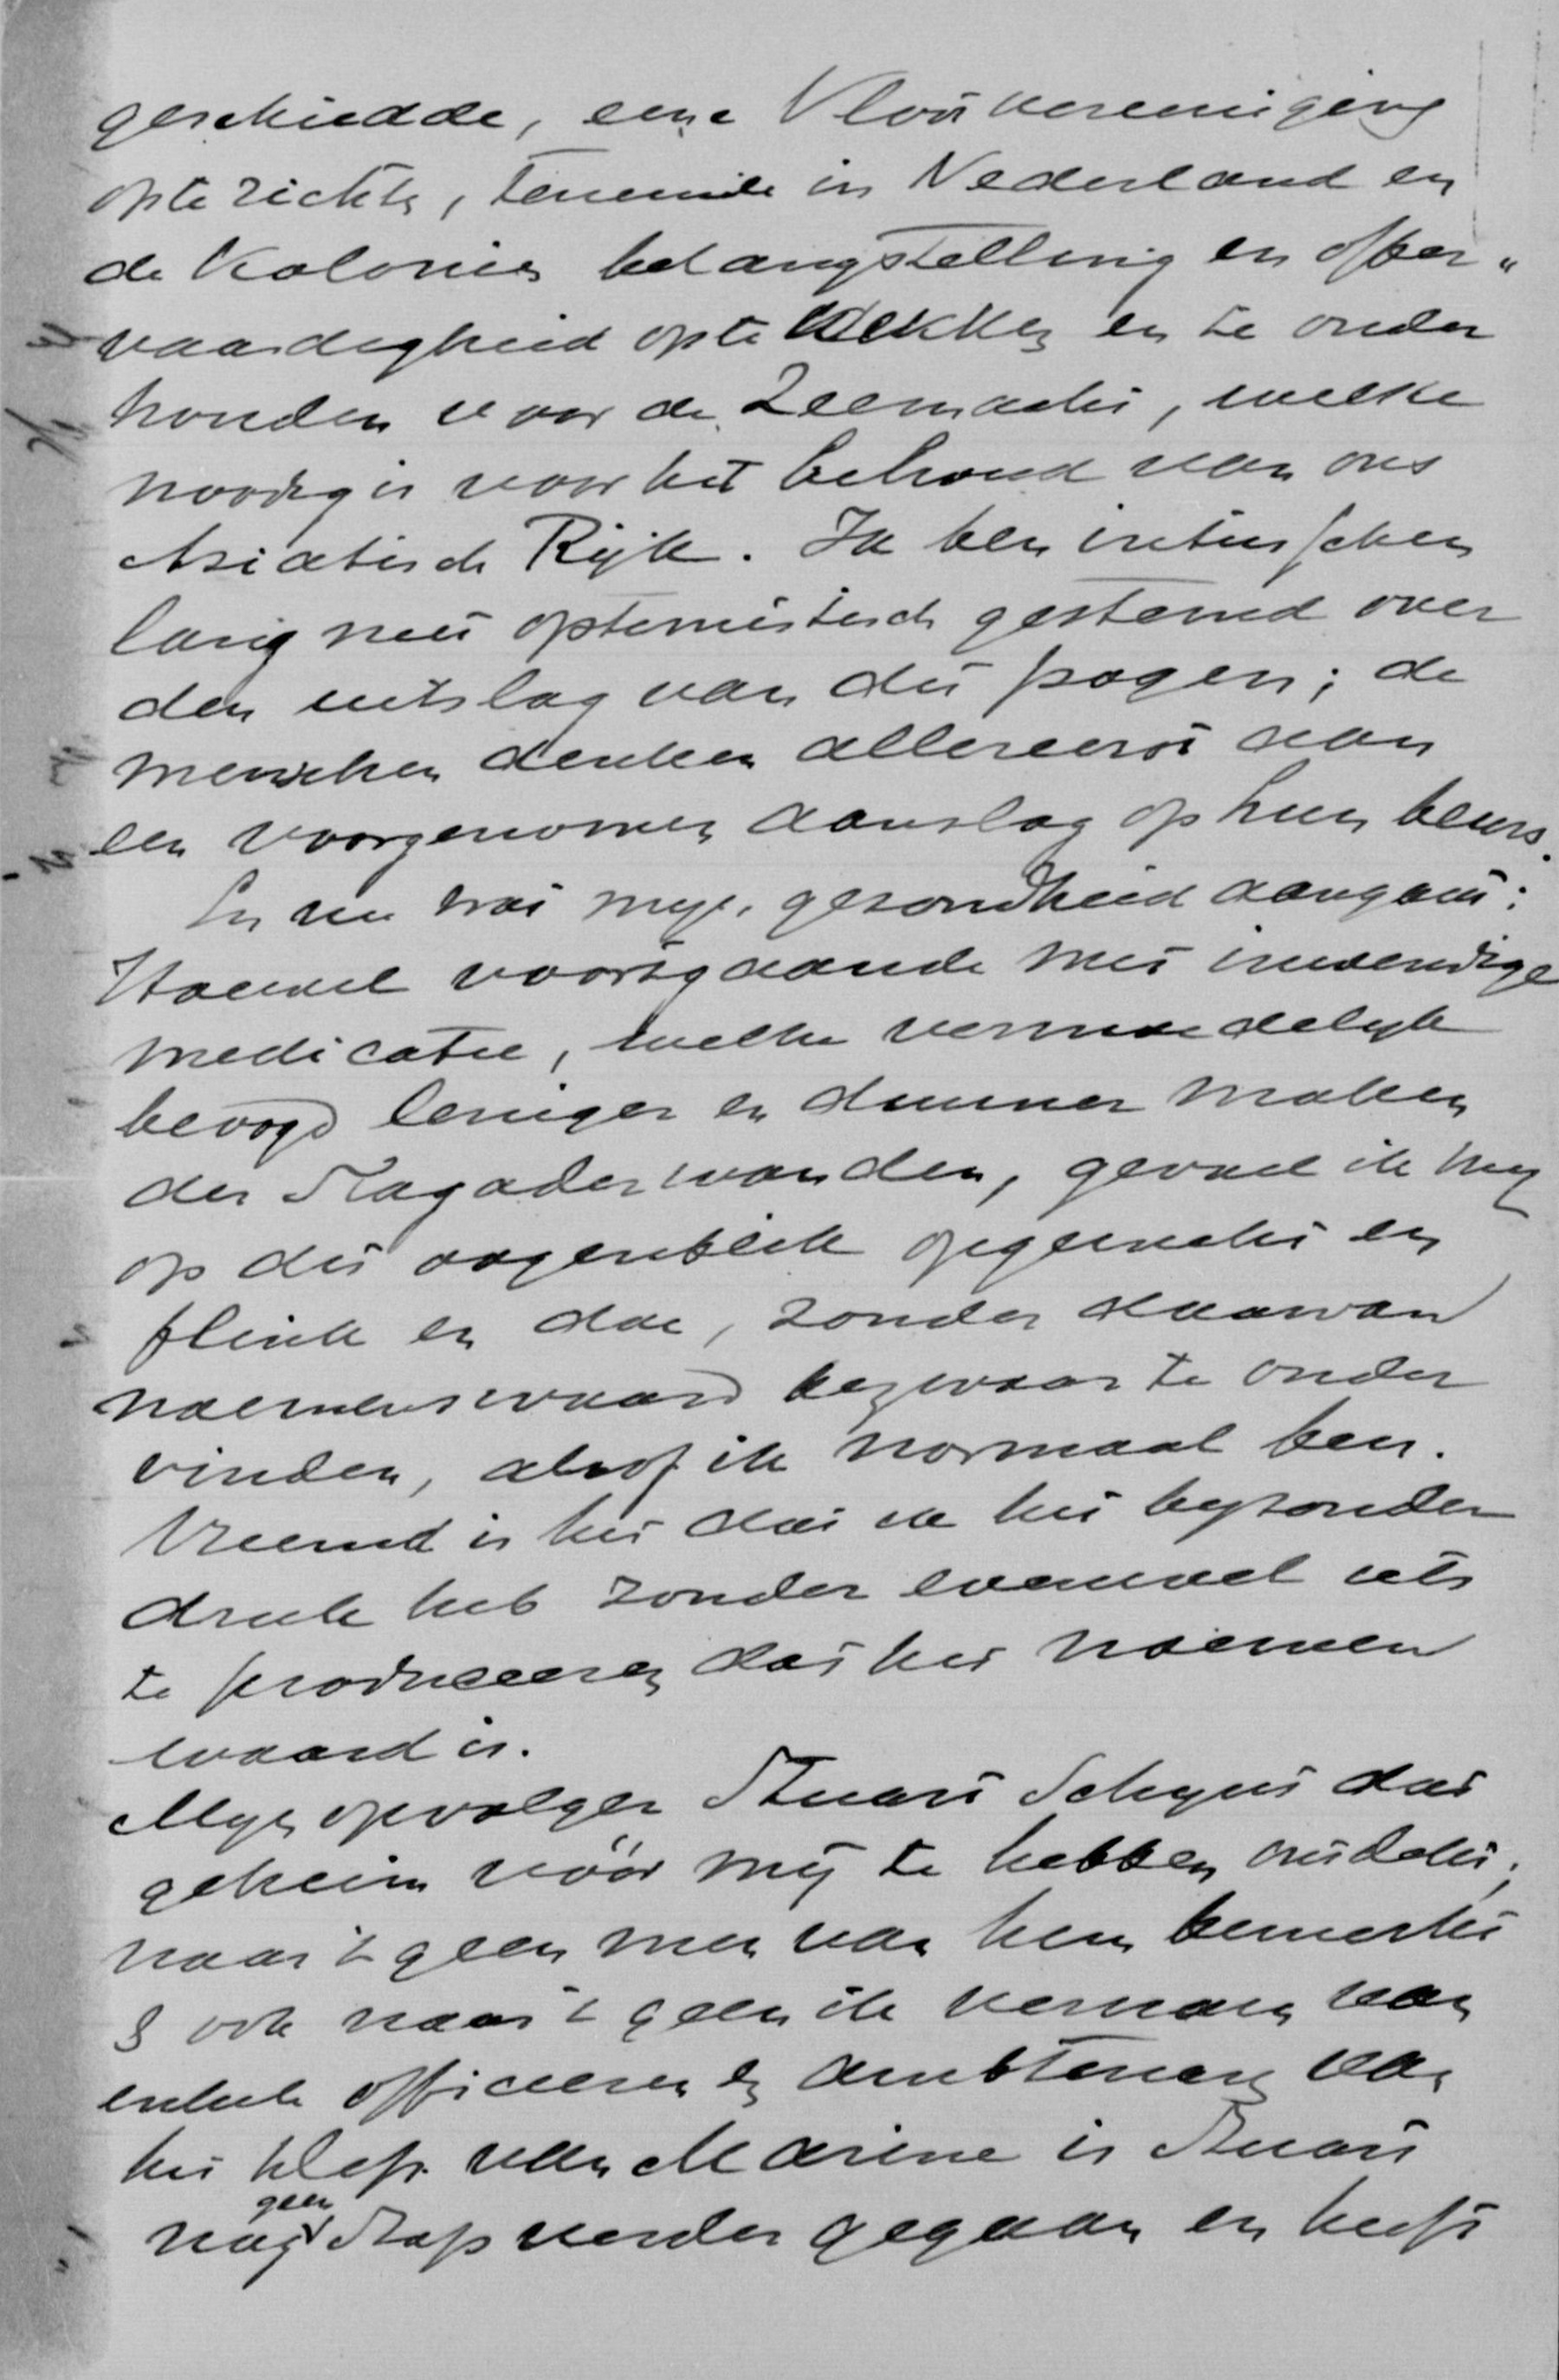 geschiedde, eene Vlootvereeniging
op te richten, teneinde in Nederland en
de Koloniën belangstelling en offer„
vaardigheid op te wekken en te onder
houden voor de Zeemacht, welke
noodig is voor het behoud van ons
Aziatisch Rijk. Ik ben intusschen
lang niet optimistisch gestemd over
den uitslag van dit pogen; de
menschen denken allereerst aan
een voorgenomen aanslag op hun beurs.
En nu wat mijn gezondheid aangaat:
Hoewel voortgaande met inwendige
medicatie, welke vermoedelijk
beoogd leniger en dunner maken
der slagaderwanden, gevoel ik mij
op dit oogenblik opgewekt en
flink en doe, zonder daarvan
noemenswaard bezwaar te onder
vinden, alsof ik normaal ben.
Vreemd is het dat ik het byzonder
druk heb zonder evenwel iets
te produceeren dat het noemen
waard is.
Mijn opvolger Stuart schijnt dat
geheim vóór mij te hebben ontdekt;
naar 't geen men van hem bemerkt
& ook naar 't geen ik vernam van
enkele officieren en ambtenaren van
het Dep. van Marine is Stuart
nog geen stap verder gegaan en heeft